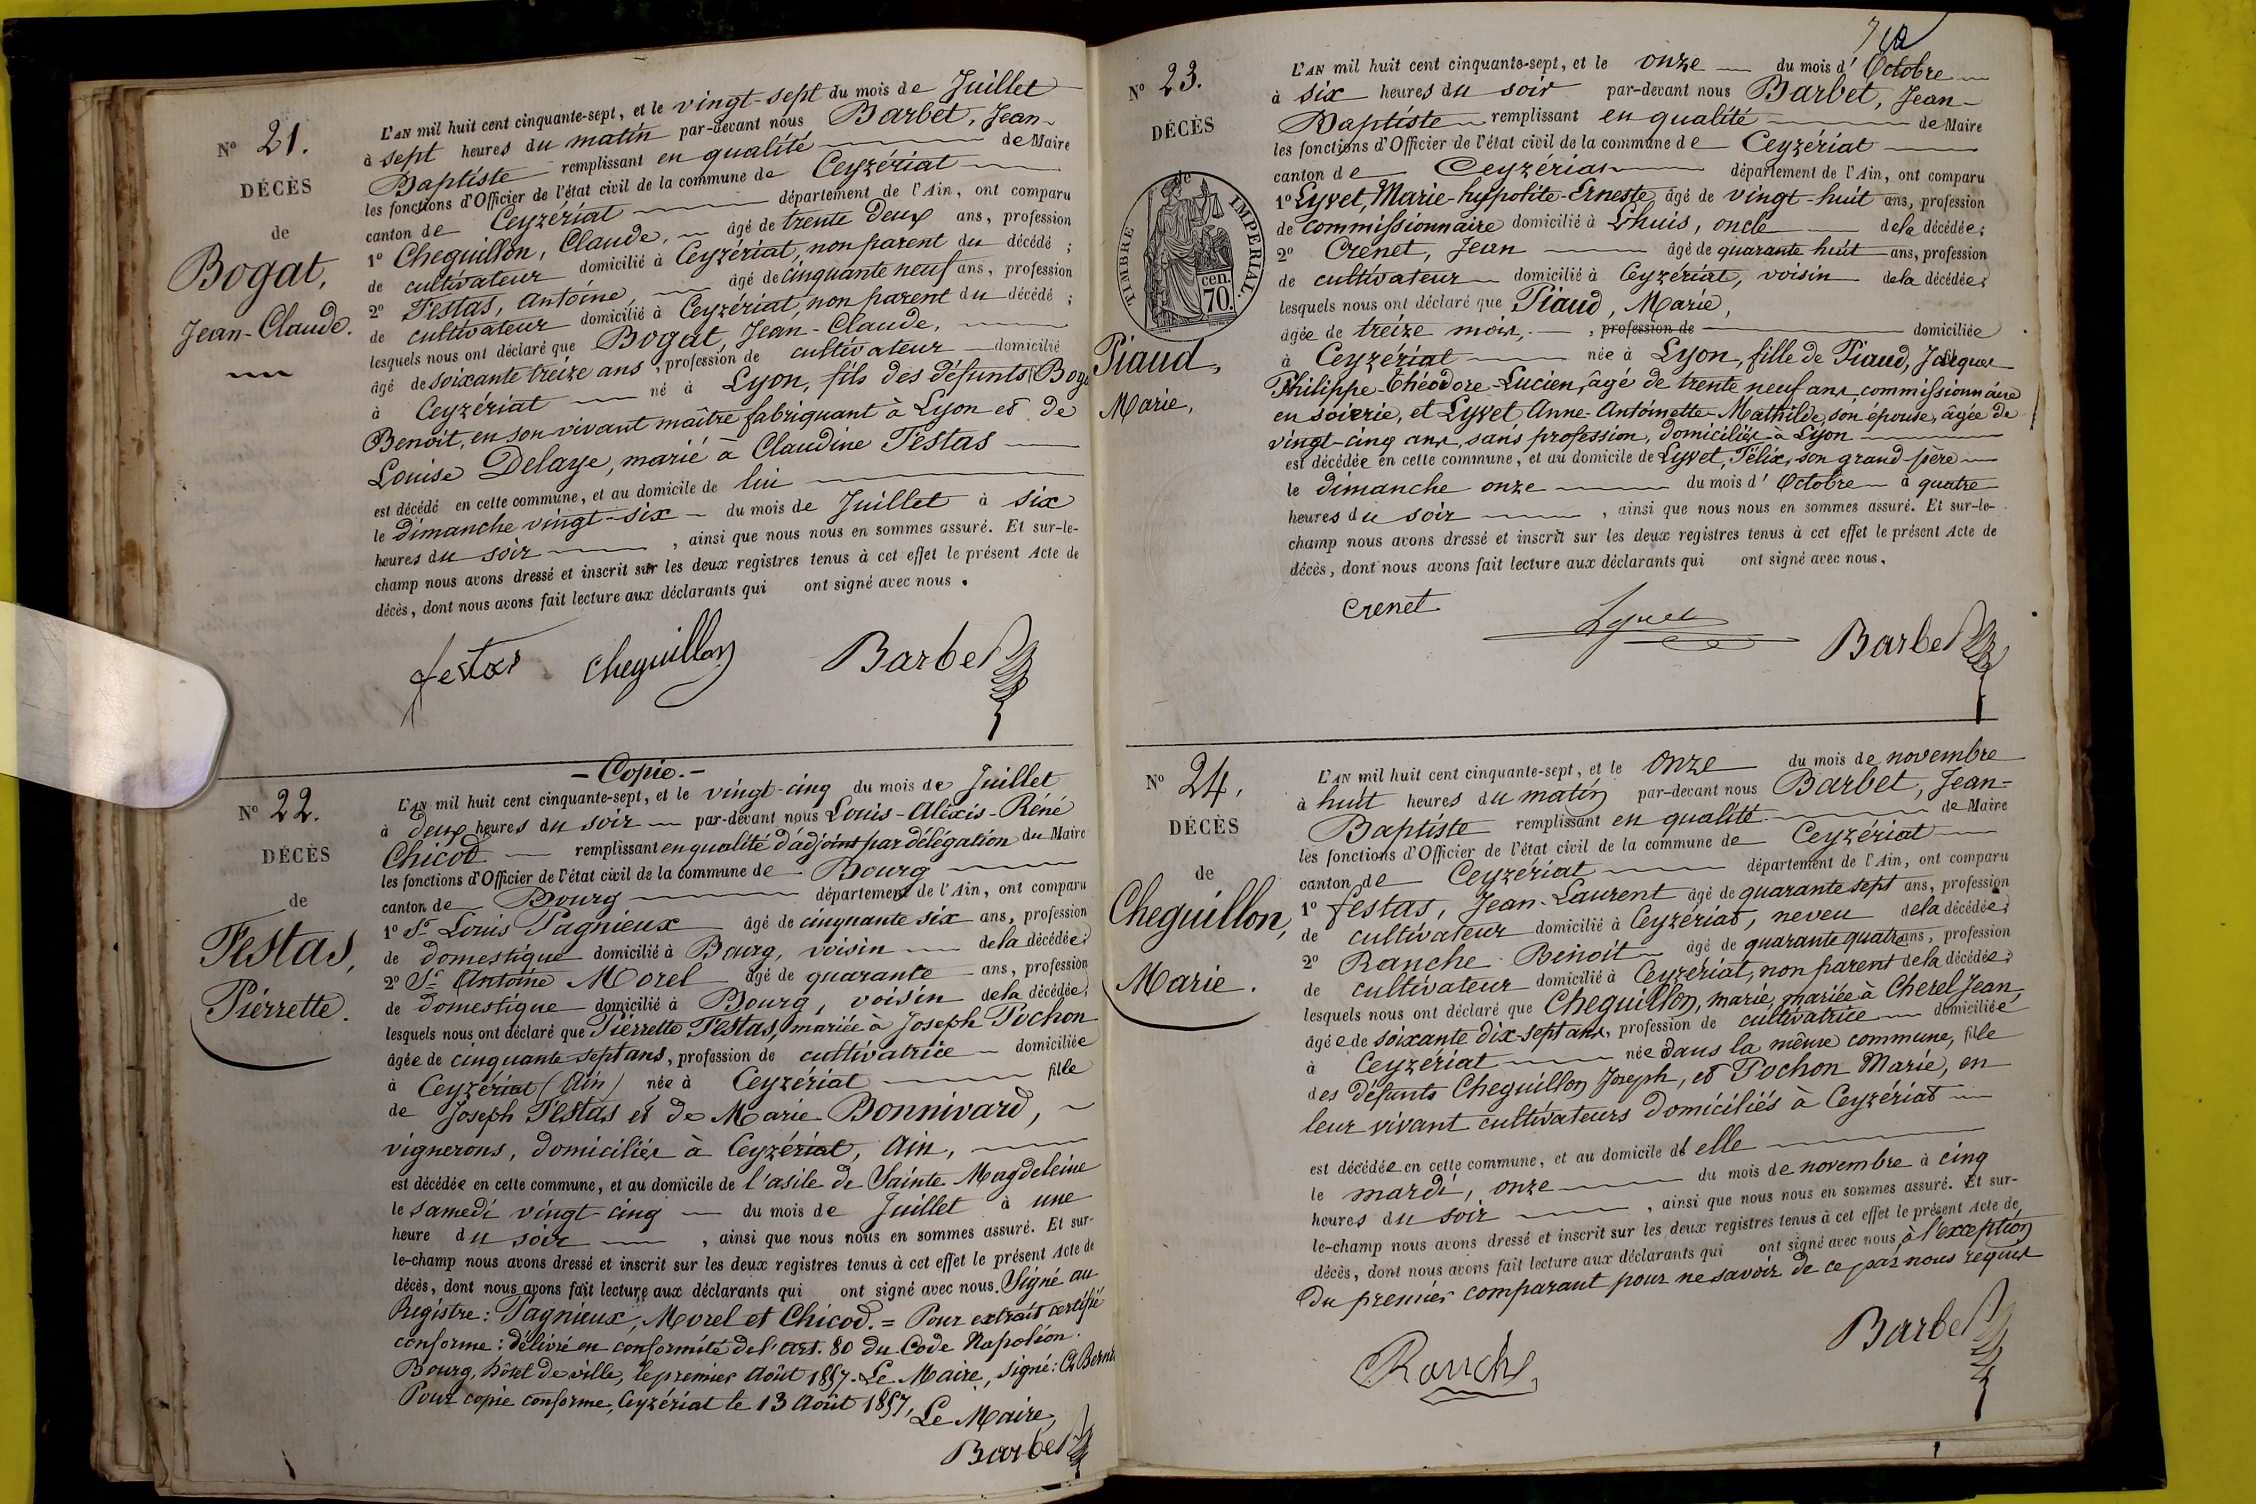 N° 21.
DÉCÈS
de
Bogat,
Jean-Claude.
L'AN mil huit cent cinquante-sept, et le vingt-sept du mois de Juillet
à sept heures du matin par-devant nous Barbet, Jean-
Baptiste remplissant en qualité de Maire
les fonctions d'Officier de l'état civil de la commune de Ceyzériat
canton de Ceyzériat département de l'Ain, ont comparu
1° Cheguillon, Claude, âgé de trente deux ans, profession
de cultivateur domicilié à Ceyzériat, non parent du décédé ;
2° Festas, Antoine, âgé de cinquante neuf ans, profession
de cultivateur domicilié à Ceyzériat, non parent du décédé ;
lesquels nous ont déclaré que Bogat, Jean-Claude,
âgé de soixante treize ans, profession de cultivateur domicilié
à Ceyzériat né à Lyon, fils des défunts
Benoit, en son vivant maître fabriquant à Lyon et de
Louise Delaye, marié à Claudine Festas
est décédé en cette commune, et au domicile de lui
le dimanche vingt-six du mois de Juillet à six
heures du soir, ainsi que nous nous en sommes assuré. Et sur-le-
champ nous avons dressé et inscrit sur les deux registres tenus à cet effet le présent Acte de
décès, dont nous avons fait lecture aux déclarants qui ont signé avec nous.
festas cheguillon Barbet
N° 22.
DÉCÈS
de
Festas,
Pierrette.
- Copie. -
L'AN mil huit cent cinquante-sept, et le vingt-cinq du mois de Juillet
à deux heures du soir par-devant nous Louis-Aléxis-Réné
Chicod remplissant en qualité d'adjoint par délégation du Maire
les fonctions d'Officier de l'état civil de la commune de Bourg
canton de Bourg département de l'Ain, ont comparu
1° Sr Louis Pagnieux âgé de cinquante six ans, profession
de domestique domicilié à Bourg, voisin de la décédée ;
2° Sr Antoine Morel âgé de quarante ans, profession
de domestique domicilié à Bourg, voisin de la décédée ;
lesquels nous ont déclaré que Pierrette Festas, mariée à Joseph Pochon
âgée de cinquante sept ans, profession de cultivatrice domiciliée
à Ceyzériat (Ain) née à Ceyzériat fille
de Joseph Festas et de Marie Bonnivard,
vignerons, domiciliés à Ceyzériat, Ain,
est décédée en cette commune, et au domicile de l'asile de Sainte Magdeleine
le samedi vingt-cinq du mois de Juillet à une
heure du soir, ainsi que nous nous en sommes assuré. Et sur-
le-champ nous avons dressé et inscrit sur les deux registres tenus à cet effet le présent Acte de
décès, dont nous avons fait lecture aux déclarants qui ont signé avec nous. Signé au
Registre : Pagnieux, Morel et Chicod. = Pour extrait certifié
conforme : délivré en conformité de l'art. 80 du Code Napoléon.
Bourg, hôtel de ville, le premier Août 1857. Le Maire, signé :
Pour copie conforme, Ceyzériat le 13 Août 1857,
Le Maire,
Barbet
N° 23.
DÉCÈS
de
TIMBRE IMPERIAL.
70 cen.
Piaud,
Marie,
L'AN mil huit cent cinquante-sept, et le onze du mois d'Octobre
à six heures du soir par-devant nous Barbet, Jean-
Baptiste remplissant en qualité de Maire
les fonctions d'Officier de l'état civil de la commune de Ceyzériat
canton de Ceyzériat département de l'Ain, ont comparu
1° Lyvet, Marie-hyppolite-Erneste, âgé de vingt-huit ans, profession
de commissionnaire domicilié à Lhuis, oncle de la décédée ;
2° Crenet, Jean âgé de quarante huit ans, profession
de cultivateur domicilié à Ceyzériat, voisin de la décédée ;
lesquels nous ont déclaré que Piaud, Marie,
âgée de treize mois, profession de domiciliée
à Ceyzériat née à Lyon, fille de Piaud, Jacques
Philippe-Théodore-Lucien, âgé de trente neuf ans commissionnaire
en soierie, et Lyvet Anne-Antoinette-Mathilde, son épouse, âgée de
vingt-cinq ans, sans profession, domiciliés à Lyon
est décédée en cette commune, et au domicile de Lyvet, Félix, son grand-père
le dimanche onze du mois d'Octobre à quatre
heures du soir, ainsi que nous nous en sommes assuré. Et sur-le-
champ nous avons dressé et inscrit sur les deux registres tenus à cet effet le présent Acte de
décès, dont nous avons fait lecture aux déclarants qui ont signé avec nous.
Crenet Lyvet Barbet
N° 24.
DÉCÈS
de
Cheguillon,
Marie.
L'AN mil huit cent cinquante-sept, et le onze du mois de novembre
à huit heures du matin par-devant nous Barbet, Jean-
Baptiste remplissant en qualité de Maire
les fonctions d'Officier de l'état civil de la commune de Ceyzériat
canton de Ceyzériat département de l'Ain, ont comparu
1° festas, Jean-Laurent âgé de quarante sept ans, profession
de cultivateur domicilié à Ceyzériat, neveu de la décédée ;
2° Ranche Benoit âgé de quarante quatre ans, profession
de cultivateur domicilié à Ceyzériat, non parent de la décédée ;
lesquels nous ont déclaré que Cheguillon, marie, mariée à Cherel Jean,
âgée de soixante dix-sept ans, profession de cultivatrice domiciliée
à Ceyzériat née dans la même commune, fille
des défunts Cheguillon Joseph, et Pochon Marie, en
leur vivant cultivateurs domiciliés à Ceyzériat
est décédée en cette commune, et au domicile d'elle
le mardi, onze du mois de novembre à cinq
heures du soir, ainsi que nous nous en sommes assuré. Et sur-
le-champ nous avons dressé et inscrit sur les deux registres tenus à cet effet le présent Acte de
décès, dont nous avons fait lecture aux déclarants qui ont signé avec nous à l'exception
du premier comparant pour ne savoir de ce par nous requis
Ranche Barbet